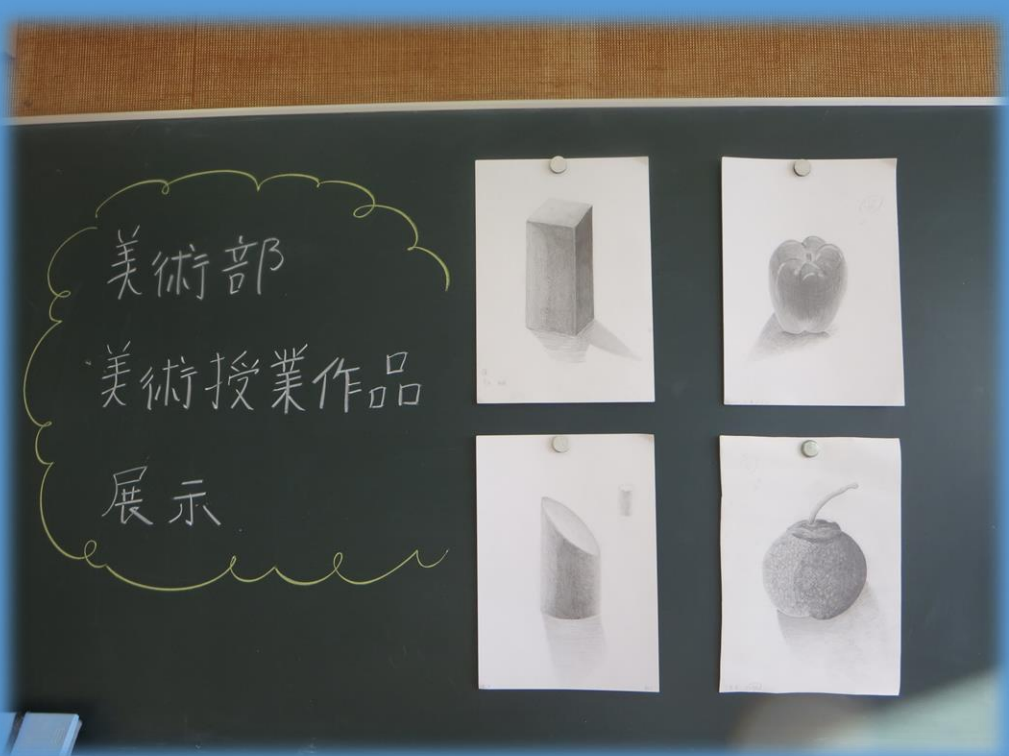 美術部
美術授業作品
展示